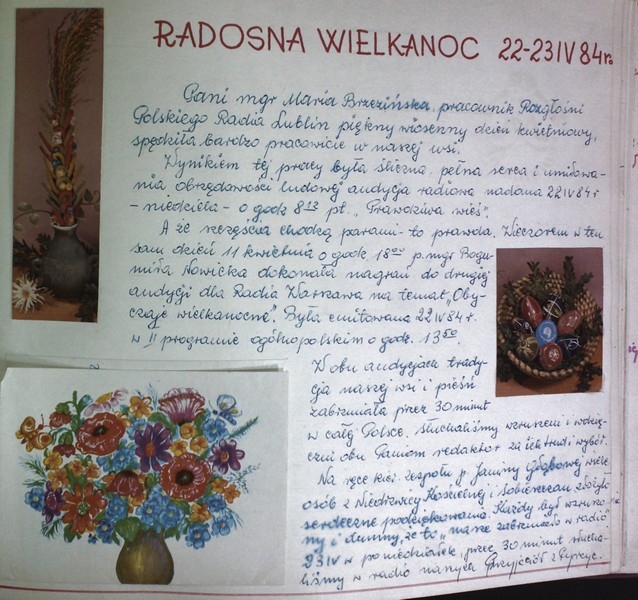 RADOSNA WIELKANOC 22-23 IV 84 r.
Pani mgr Maria Brzezińska, pracownik Rozgłośni
Polskiego Radia Lublin piękny wiosenny dzień kwietniowy,
spędziła bardzo pracowicie w naszej wsi.
Wynikiem tej pracy była śliczna, pełna serca i umiłowa-
nia obrzędowości ludowej audycja radiowa nadana 22 IV 84 r
- niedziela - o godz 8 13 pt. "Prawdziwa wieś".
A że szczęścia chodzą parami - to prawda. Wieczorem w ten
sam dzień 11 kwietnia o godz. 18 00 p. mgr Bogu-
miła Nowicka dokonała nagrań do drugiej
audycji dla Radia Warszawa na temat "Oby-
czaje wielkanocne". Była emitowana 22 IV 84 r.
w II programie ogólnopolskim o godz. 13 50.
W obu audycjach trady-
cja naszej wsi i pieśń
zabrzmiała przez 30 minut
w całej Polsce. Słuchaliśmy wzruszeni i wdzię-
czni obu Paniom redaktor za ich trud i wybór.
Na ręce kier. zespołu p. Janiny Głąbowej wiele
osób z Niedrzwicy Kościelnej i Sobieszczan złożyło
serdeczne podziękowania. Każdy był wzruszo-
ny i dumny, że to "nasze zabrzmiało w radio"
23 IV w poniedziałek, przez 30 minut słucha-
liśmy w radio naszych Przyjaciół z